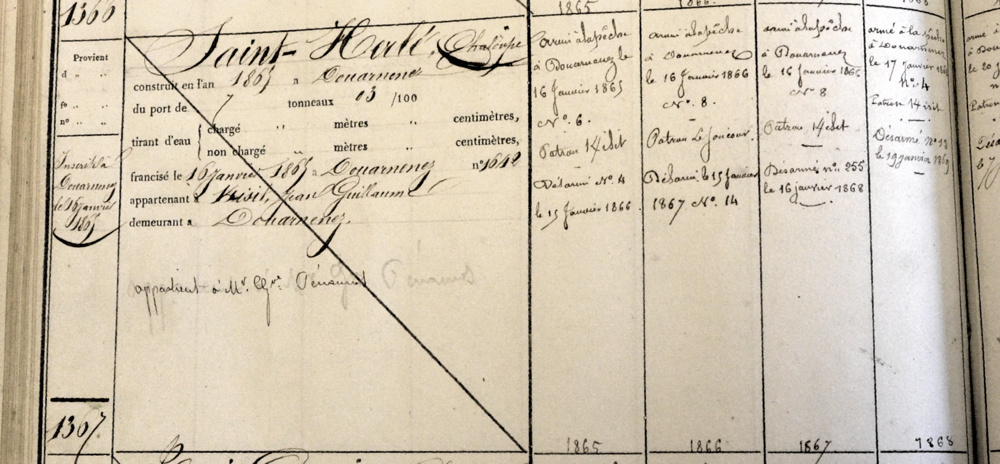 1366
Provient
d
fo
no
Inscrit à
Douarnenez
le 16 janvier
1865
Saint-Herlé, Chaloupe
construit en l'an 1865 a Douarnenez
du port de 7 tonneaux 03 /100
tirant d'eau { chargé " mètres " centimètres,
non chargé " mètres " centimètres,
francisé le 16 janvier 1865 a Douarnenez n° 1642
appartenant à Jean Guillaume
demeurant a Douarnenez
appartient à Mr. Pénanros
1367
1865
armé à la pêche
à Douarnenez le
16 Janvier 1865
N°. 6.
Patron
Désarmé N°. 4
le 15 Janvier 1866
1865
armé à la pêche
à Douarnenez
le 16 Janvier 1866
N°. 8.
Patron Le Joncour
Désarmé le 15 Janvier
1867 N°. 14
1866
armé à la pêche
à Douarnenez
le 16 Janvier 1866
N° 8
Patron
Désarmé n°. 255
le 16 janvier 1868
1867
armé à la
à Douarnenez
le 17 janvier
n°. 4
Patron
Désarmé N°
le 19 janvier 1869
1868